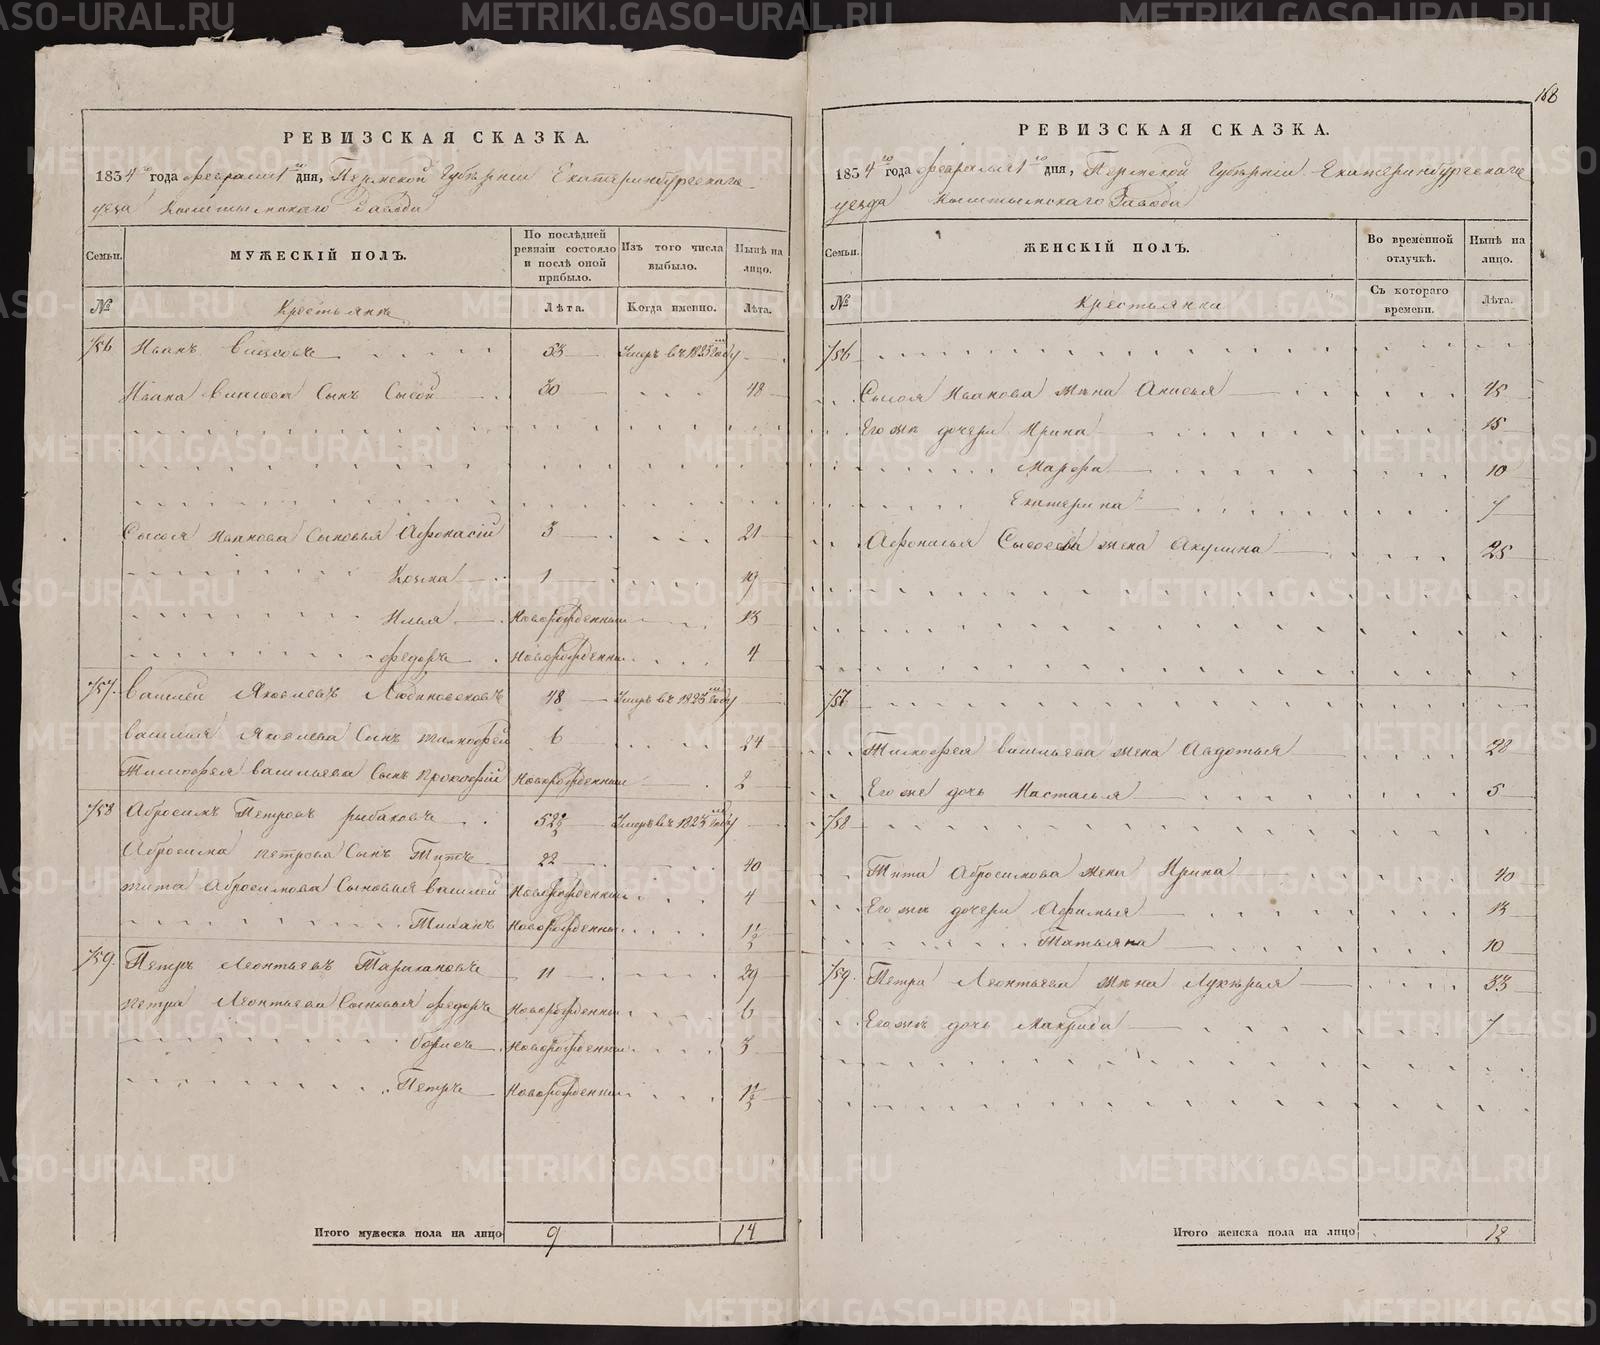 168
РЕВИЗСКАЯ СКАЗКА.
1834го года февраля 1го дня, Пермской Губернiи Екатеринбургскаго
уезда Кыштымскаго Завода
Семьи.
МУЖЕСКIЙ ПОЛЪ.
По послѣдней ревизiи состояло и послѣ оной прибыло.
Изъ того числа выбыло.
Нынѣ на лицо.
№
Крестьяне
Лѣта.
Когда именно.
Лѣта.
756 Иванъ 53 Умеръ въ 1823 году
Ивана Сынъ Сысой 30 48
Сысоя Иванова Сыновья Афонасiй 3 21
Козма 1 19
Илья Новорожденный 13
Федоръ Новорожденный 4
757 Василей Яковлевъ 48 Умеръ въ 1823 году
Василья Яковлева Сынъ Тимофей 6 24
Тимофея Васильева Сынъ Прокофiй Новорожденный 2
758 Абросимъ Петровъ Рыбаковъ 52 Умеръ въ 1823 году
Абросима Петрова Сынъ Титъ 22 40
Тита Абросимова Сыновья Василей Новорожденный 4
Новорожденный 1½
759 Петръ Леонтьевъ Таракановъ 11 29
Петра Леонтьева Сыновья Федоръ Новорожденный 6
Борисъ Новорожденный 3
Петръ Новорожденный 1½
Итого мужеска пола на лицо 9 14
РЕВИЗСКАЯ СКАЗКА.
1834го года февраля 1го дня, Пермской Губернiи Екатеринбургскаго
уезда Кыштымскаго Завода
Семьи.
ЖЕНСКIЙ ПОЛЪ.
Во временной отлучкѣ.
Нынѣ на лицо.
№
Крестьянки
Съ котораго времени.
Лѣта.
756
Сысоя Иванова жена Анисья 45
Его же дочери Ирина 15
Марфа 10
Екатерина 7
Афонасья Сысоева жена Акулина 25
757
Тимофея Васильева жена Авдотья 28
Его же дочь Настасья 5
758
Тита Абросимова жена Ирина 40
Его же дочери Афимья 13
Татьяна 10
759 Петра Леонтьева жена Лукерья 33
Его же дочь Макрида 7
Итого женска пола на лицо 12
METRIKI.GASO-URAL.RU